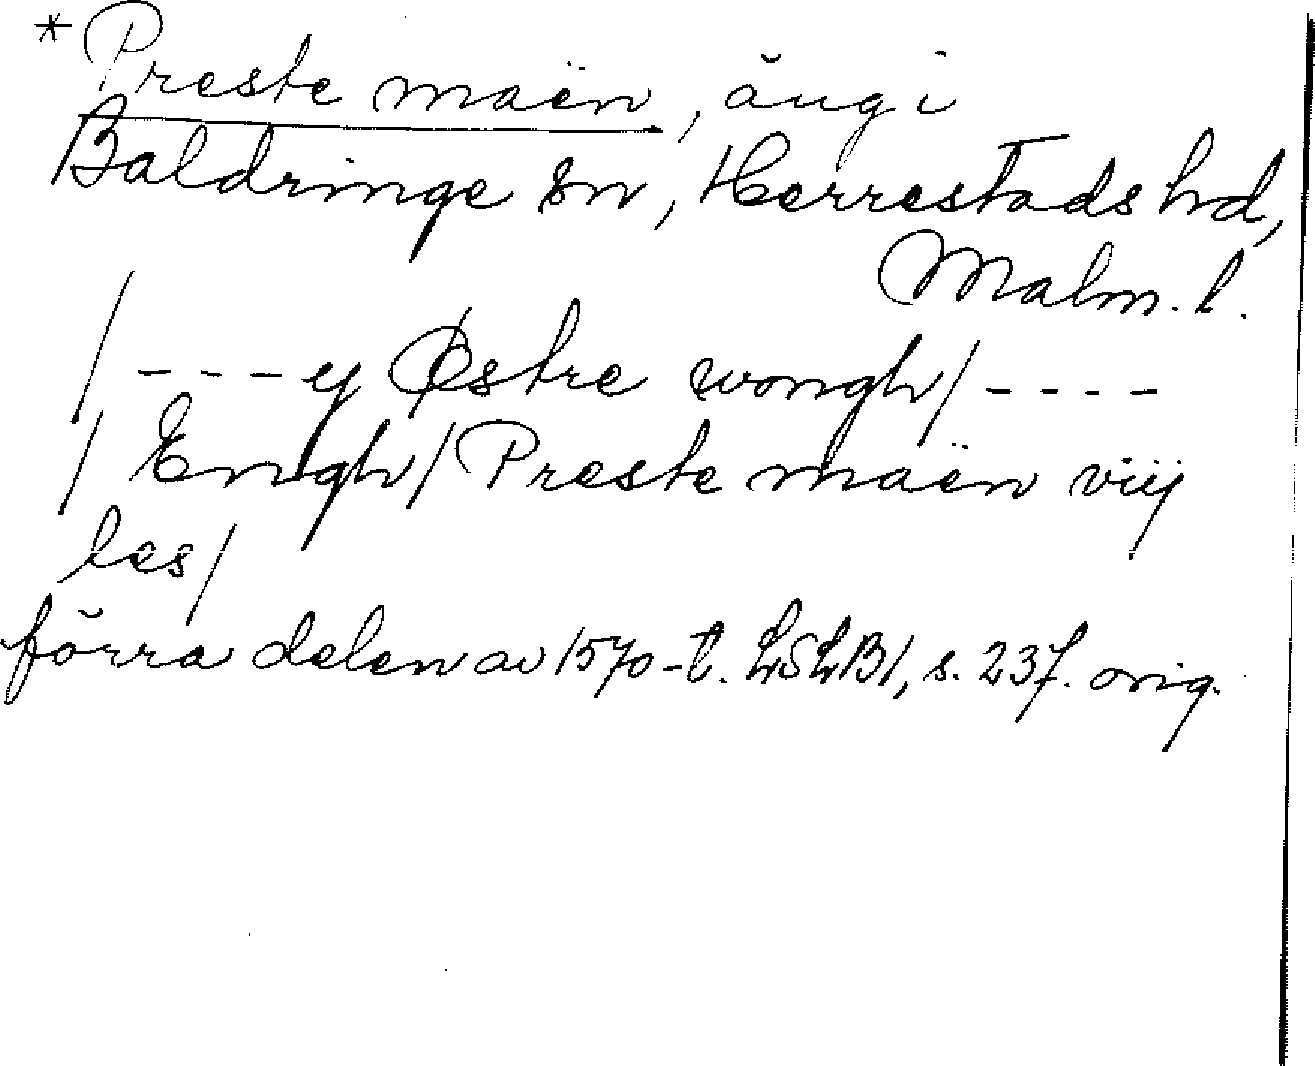 * Preste maën, äng i
Baldringe sn, Herrestads hd,
Malm. l.
/ - - - y Østre wongh / - - - -
/ Engh / Preste maën viij
les /
förra delen av 1570-t. LSLB1, s. 237. orig.